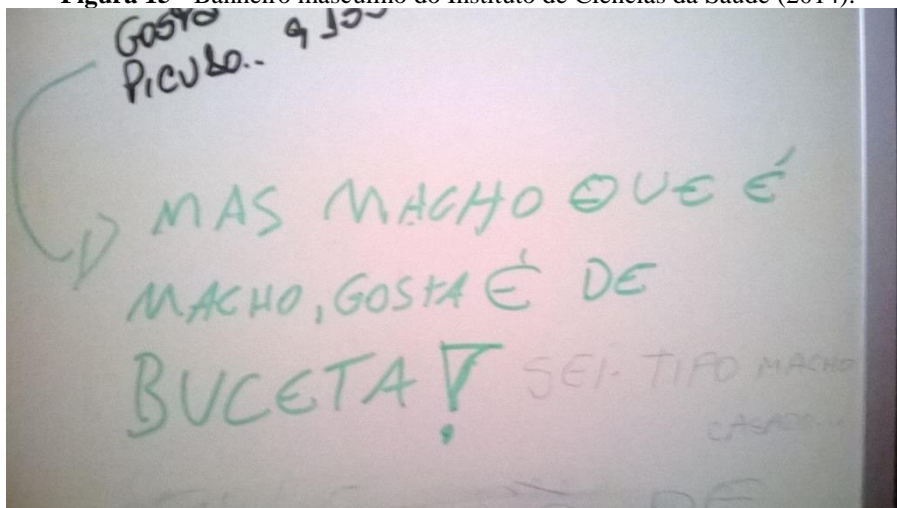 Figura 15 - Banheiro masculino do Instituto de Ciências da Saúde (2014).
GOSTO
MAS MACHO QUE É
MACHO, GOSTA É DE
BUCETA!
SEI. TIPO MACHO
CASADO...
DE